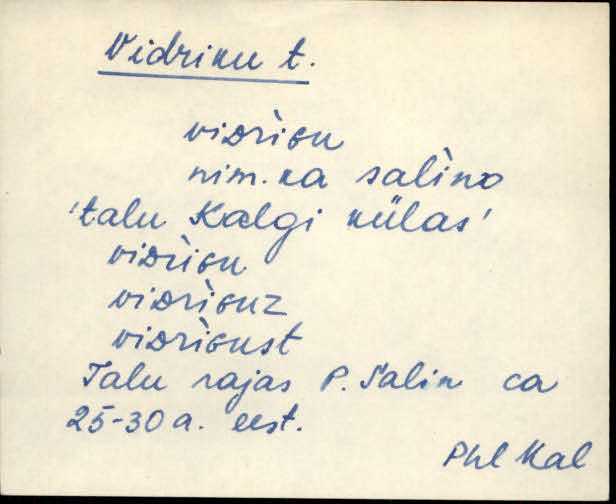 Vidriku t.
viᴅriɢu
nim. ka salino
'talu Kalgi külas'
viᴅriɢu
viᴅriɢuz
viᴅriɢust
Talu rajas P. Salin ca
25-30 a. eest.
Phl Kal